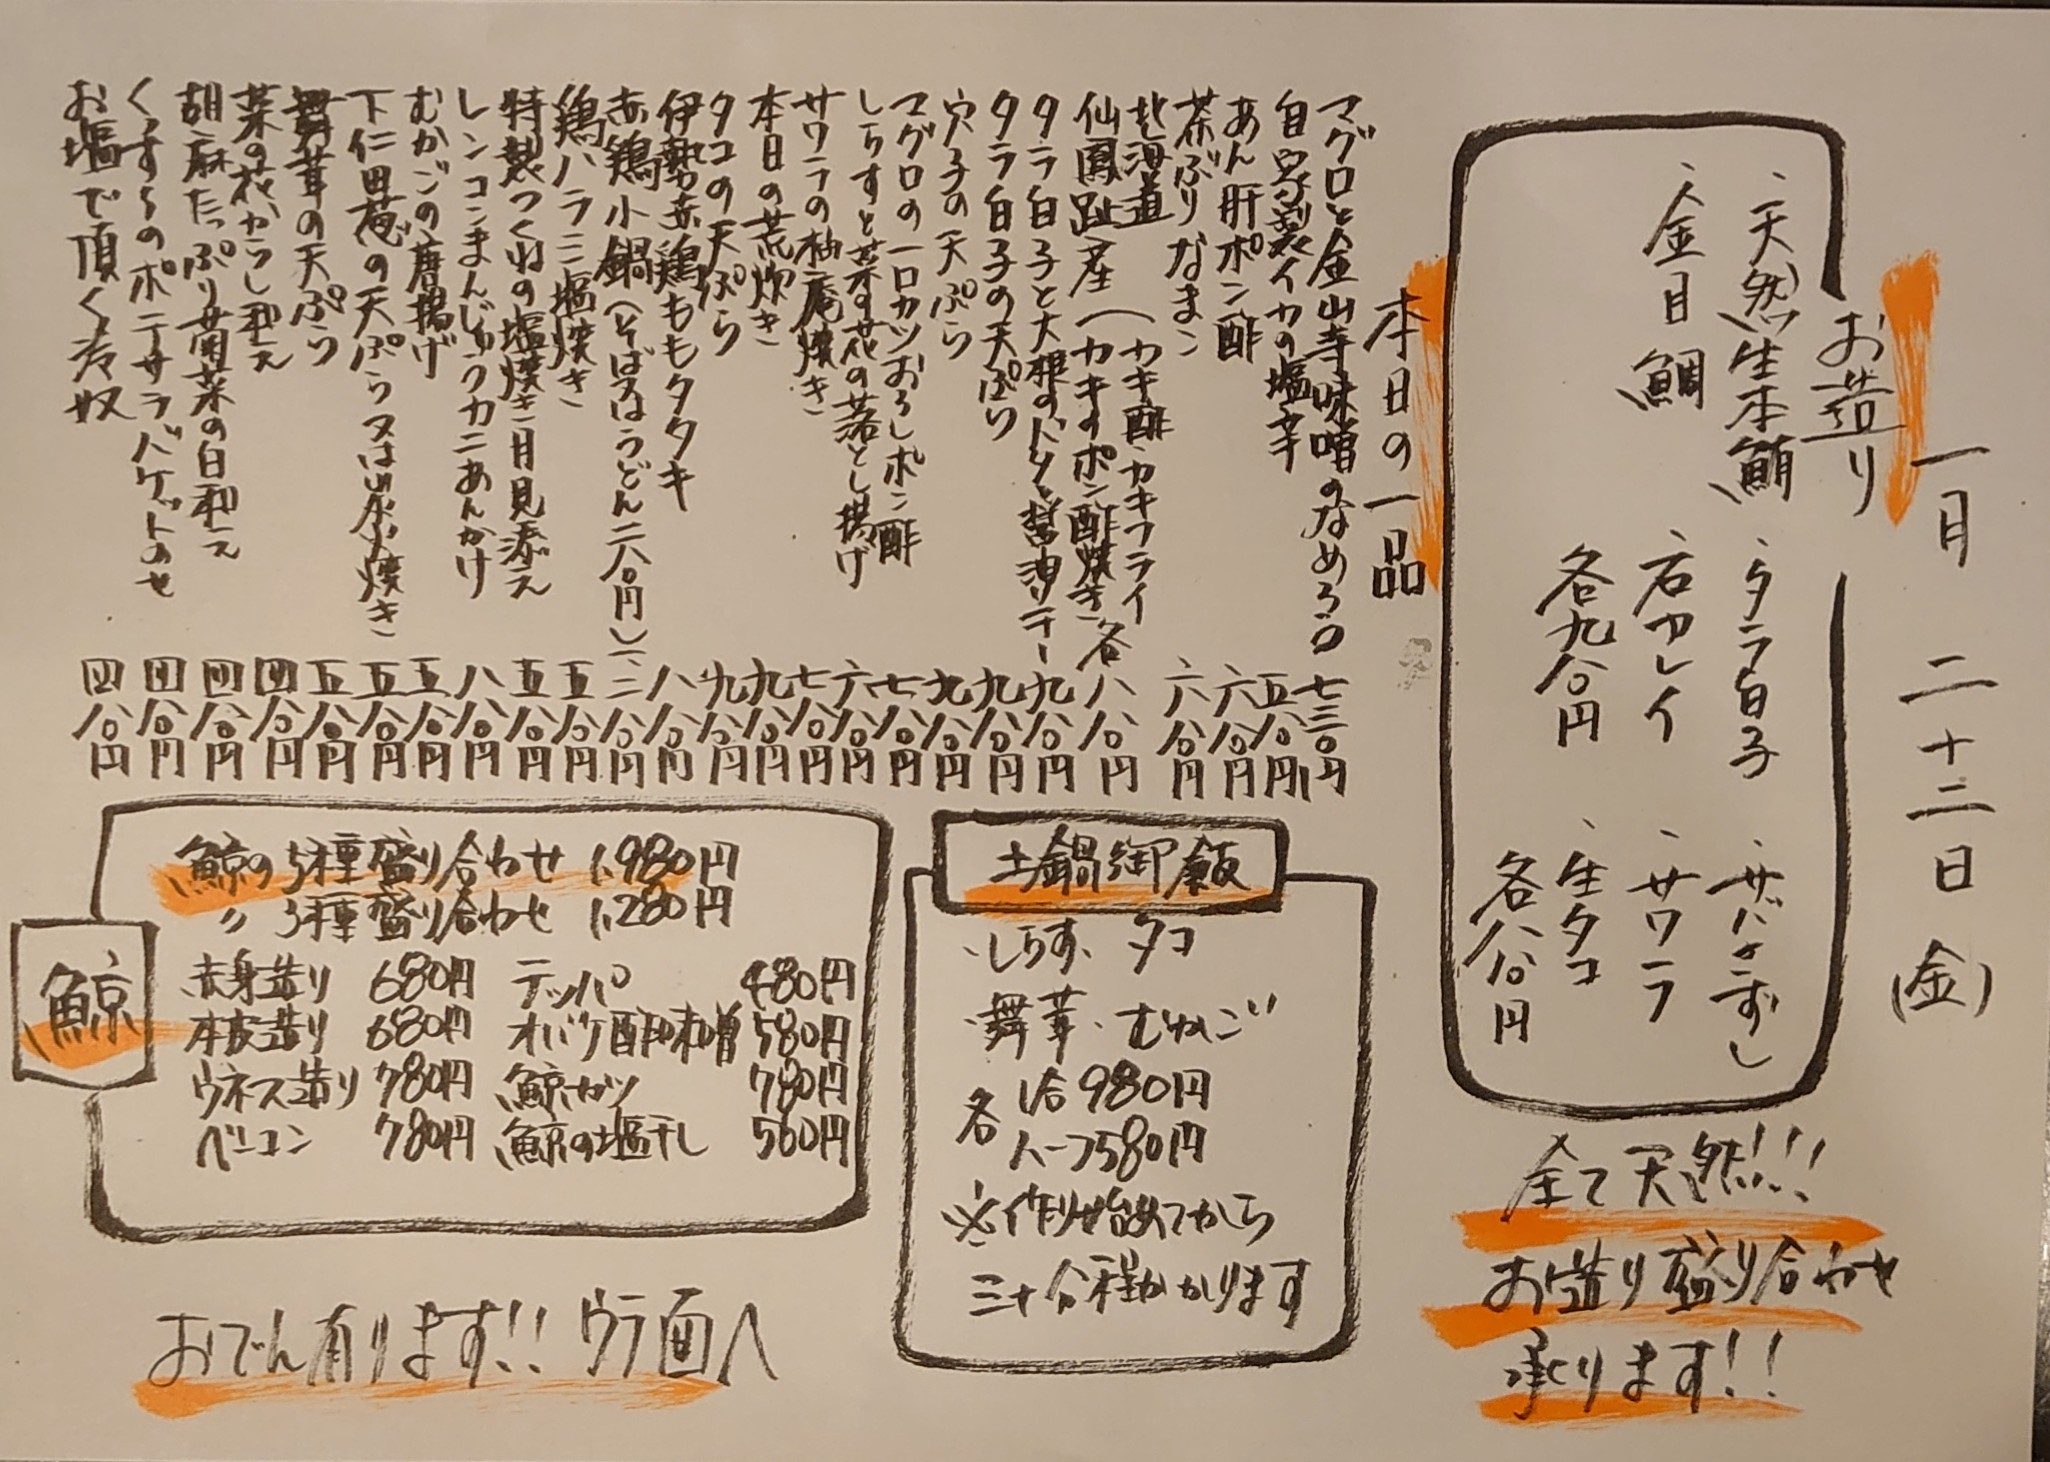 一月 二十三日 (金)
お造り
、天然生本鮪
、金目鯛
、タラ白子
、石カレイ
各九八〇円
、サバきずし
、サワラ
、生タコ
各八八〇円
全て天然!!!
お造り盛り合わせ
承ります!!
本日の一品
マグロと金山寺味噌のなめろう 七三〇円
自家製イカの塩辛 五八〇円
あん肝ポン酢 六八〇円
茶ぶりなまこ 六八〇円
北海道
仙鳳趾産(カキ酢・カキフライ
(カキすポン酢焼き 各八八〇円
タラ白子と大根のバター醤油ソテー 九八〇円
タラ白子の天ぷら 九八〇円
穴子の天ぷら 九八〇円
マグロの一口カツおろしポン酢 七八〇円
しらすと菜の花の落とし揚げ 六八〇円
サワラの柚庵焼き 七八〇円
本日の荒炊き 九八〇円
タコの天ぷら 九八〇円
伊勢赤鶏ももタタキ 八八〇円
赤鶏小鍋(そば又はうどん二八〇円) 一、二八〇円
鶏ハラミ塩焼き 五八〇円
特製つくねの塩焼き月見添え 五八〇円
レンコンまんじゅうカニあんかけ 八八〇円
むかごの唐揚げ 五八〇円
下仁田葱の天ぷら又は炭火焼き 五八〇円
舞茸の天ぷら 五八〇円
菜の花からし和え 四八〇円
胡麻たっぷり菊菜の白和え 四八〇円
くずしのポテサラバケットのせ 四八〇円
お塩で頂く冷奴 四八〇円
土鍋御飯
・しらす・タコ
・舞茸・むかご
各 1合 980円
ハーフ580円
※作り始めてから
三十分程かかります
鯨
鯨の5種盛り合わせ 1,980円
〃 3種盛り合わせ 1,280円
赤身造り 680円 テッパ 480円
本皮造り 680円 オバケ酢味噌 580円
ウネス造り 780円 鯨カツ 780円
ベーコン 780円 鯨の塩干し 560円
おでん有ります!! ウラ面へ